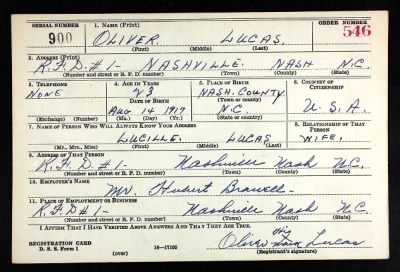 SERIAL NUMBER 1. NAME (Print) ORDER NUMBER
900 OLIVER LUCAS. 546
(First) (Middle) (Last)
2. ADDRESS (Print)
R.F.D. #1- NASHVILLE NASH N.C.
(Number and street or R. F. D. number) (Town) (County) (State)
3. TELEPHONE 4. AGE IN YEARS 5. PLACE OF BIRTH 6. COUNTRY OF CITIZENSHIP
NONE 23 NASH. COUNTY.
DATE OF BIRTH (Town or county)
Aug 14 1917 N.C. U.S.A.
(Exchange) (Number) (Mo.) (Day) (Yr.) (State or country)
7. NAME OF PERSON WHO WILL ALWAYS KNOW YOUR ADDRESS 8. RELATIONSHIP OF THAT PERSON
LUCILLE. LUCAS WIFE.
(Mr., Mrs., Miss) (First) (Middle) (Last)
9. ADDRESS OF THAT PERSON
R.F.D. #1- Nashville Nash N.C.
(Number and street or R. F. D. number) (Town) (County) (State)
10. EMPLOYER'S NAME
Mr. Hubert
11. PLACE OF EMPLOYMENT OR BUSINESS
R.F.D #1- Nashville Nash N.C.
(Number and street or R. F. D. number) (Town) (County) (State)
I AFFIRM THAT I HAVE VERIFIED ABOVE ANSWERS AND THAT THEY ARE TRUE.
REGISTRATION CARD
D. S. S. Form 1 16-17105 Oliver Lucas
(over) (Registrant's signature)